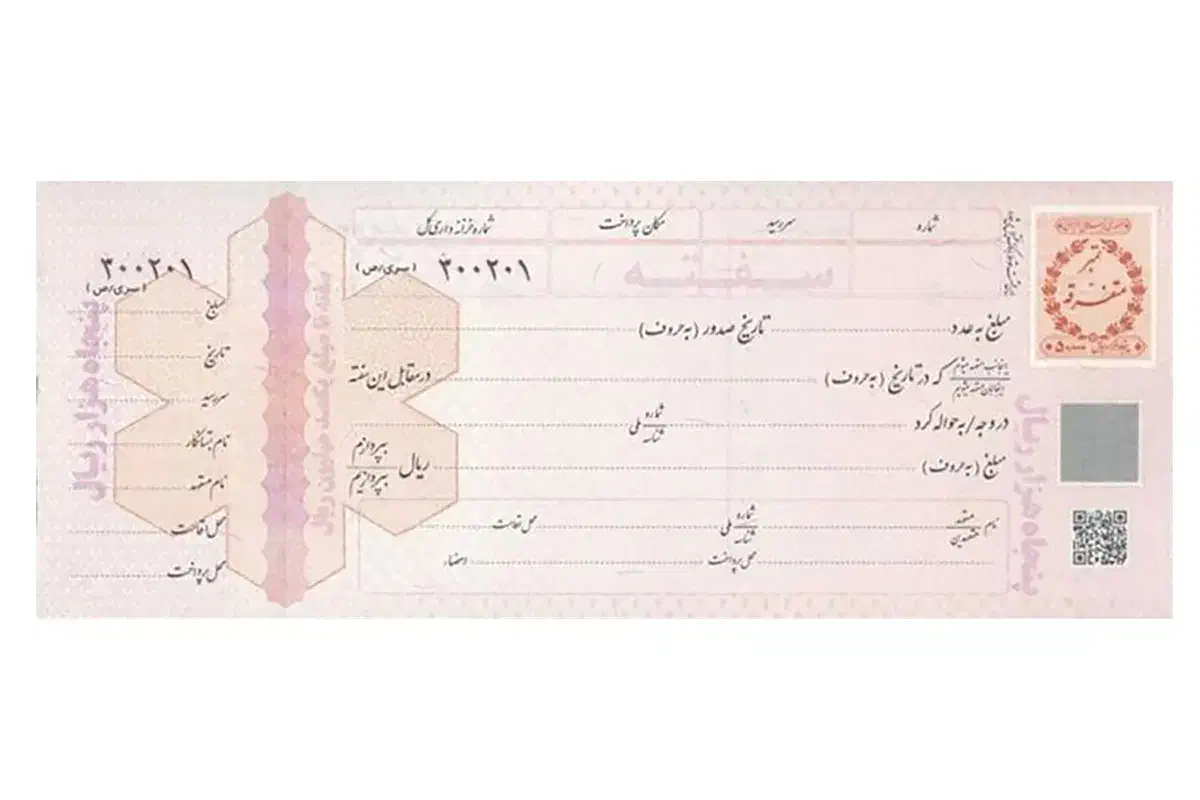 شماره
سررسید
مکان پرداخت
شماره خزانه داری کل
سفته
۳۰۰۲۰۱ (سری/ص)
مبلغ به عدد تاریخ صدور (به حروف)
اینجانب متعهد میشوم
اینجانبان متعهد میشویم
که در تاریخ (به حروف) در مقابل این سفته
در وجه / به حواله کرد شماره ملی
شناسه
مبلغ (به حروف) ریال بپردازم
بپردازیم
نام متعهد شماره ملی محل اقامت
متعهدین شناسه
محل پرداخت امضاء
تمبر
متفرقه
پنجاه هزار ریال
سفته تا مبلغ یکصد میلیون ریال
۳۰۰۲۰۱
(سری/ص)
مبلغ
تاریخ
سررسید
نام بستانکار
نام متعهد
محل اقامت
محل پرداخت
پنجاه هزار ریال